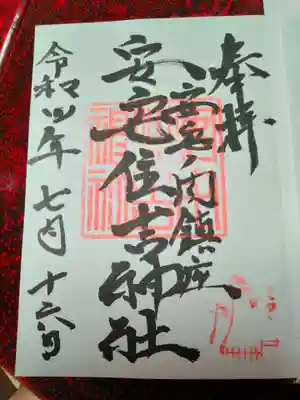 奉拝
ノ内鎮座
安宅住吉神社
令和四年七月十六日